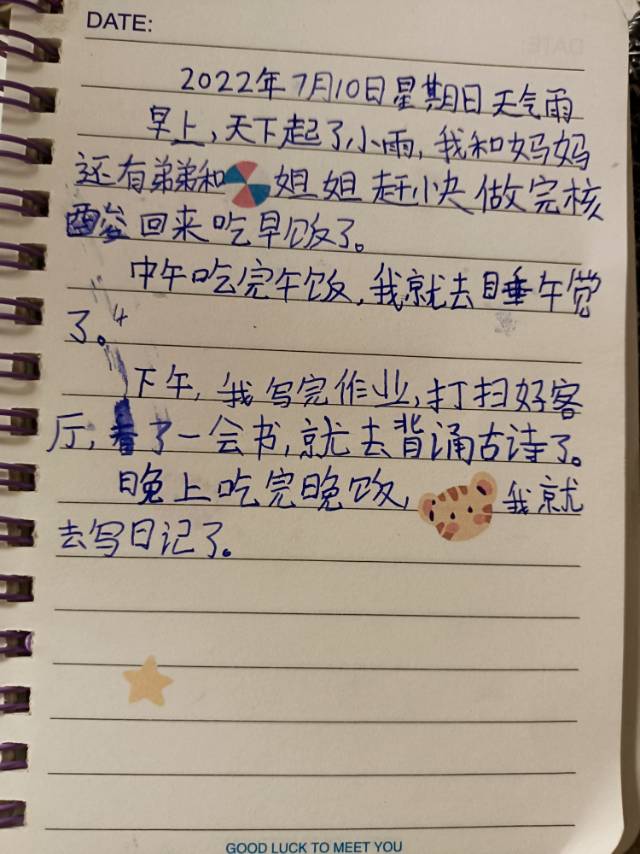 DATE:
2022年7月10日星期日天气雨
早上,天下起了小雨,我和妈妈
还有弟弟和姐姐赶小快做完核
酸回来吃早饭了。
中午吃完午饭,我就去睡午觉
了。
下午,我写完作业,打扫好客
厅,看了一会书,就去背诵古诗了。
晚上吃完晚饭,我就
去写日记了。
GOOD LUCK TO MEET YOU